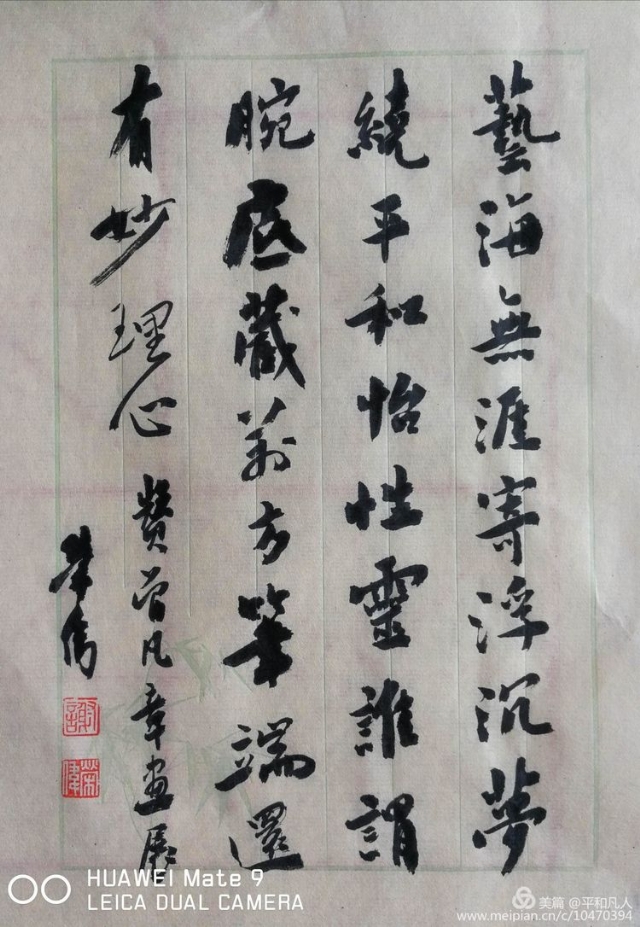 藝海無涯寄浮沉夢
繞平和怡性靈誰謂
腕底藏萬方筆端還
有妙理心
贊曾凡章畫展
榮偉
謝
榮偉
HUAWEI Mate 9
LEICA DUAL CAMERA
美篇 @平和凡人
www.meipian.cn/c/10470394